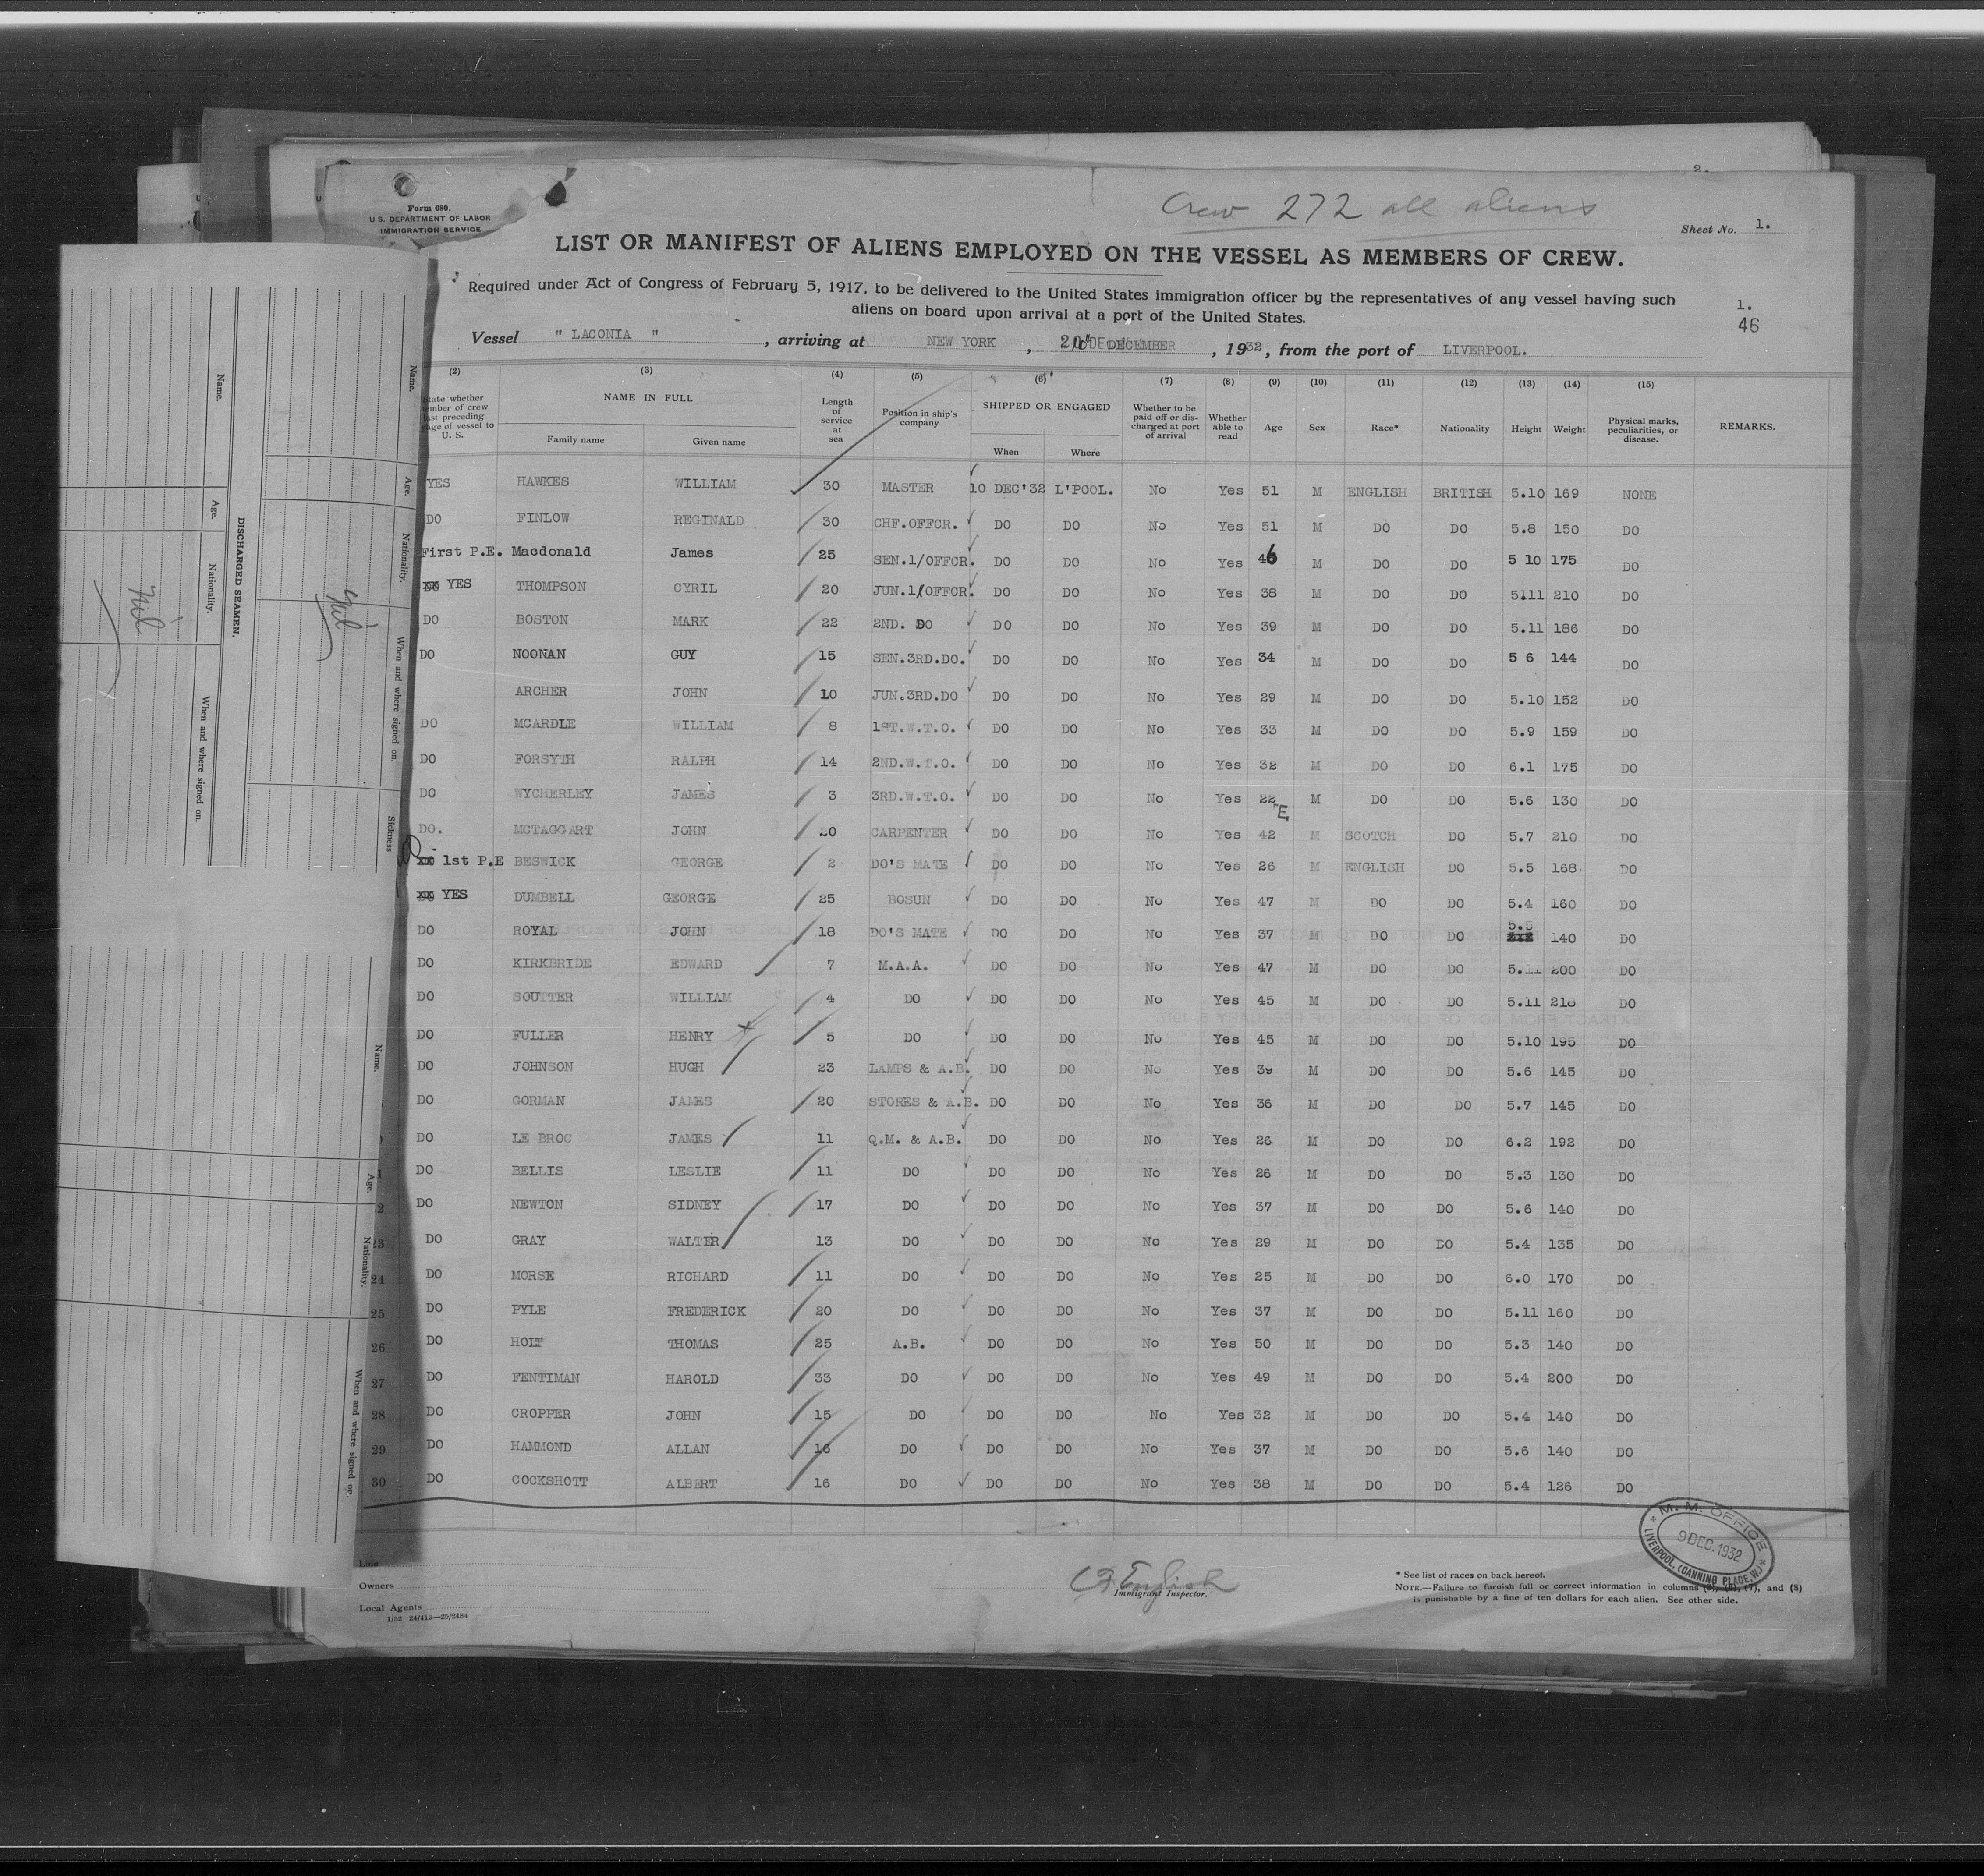 Crew 272 all aliens
Form 680.
U.S. DEPARTMENT OF LABOR
IMMIGRATION SERVICE
Sheet No. 1.
LIST OR MANIFEST OF ALIENS EMPLOYED ON THE VESSEL AS MEMBERS OF CREW.
Required under Act of Congress of February 5, 1917, to be delivered to the United States immigration officer by the representatives of any vessel having such
aliens on board upon arrival at a port of the United States.
1.
46
Vessel " LACONIA ", arriving at NEW YORK, 20 DECEMBER, 1932, from the port of LIVERPOOL.
(2) (3) (4) (5) (6) (7) (8) (9) (10) (11) (12) (13) (14) (15)
NAME IN FULL
Family name Given name
Length of service at sea
Position in ship's company
SHIPPED OR ENGAGED
When Where
Whether to be paid off or discharged at port of arrival
Whether able to read
Age Sex Race* Nationality Height Weight
Physical marks, peculiarities, or disease.
REMARKS.
YES HAWKES WILLIAM 30 MASTER 10 DEC'32 L'POOL. No Yes 51 M ENGLISH BRITISH 5.10 169 NONE
DO FINLOW REGINALD 30 CHF.OFFCR. DO DO No Yes 51 M DO DO 5.8 150 DO
First P.E. Macdonald James 25 SEN.1/OFFCR. DO DO No Yes 46 M DO DO 5 10 175 DO
YES THOMPSON CYRIL 20 JUN.1/OFFCR. DO DO No Yes 38 M DO DO 5.11 210 DO
DO BOSTON MARK 22 2ND. DO DO DO No Yes 39 M DO DO 5.11 186 DO
DO NOONAN GUY 15 SEN.3RD.DO. DO DO No Yes 34 M DO DO 5 6 144 DO
ARCHER JOHN 10 JUN.3RD.DO DO DO No Yes 29 M DO DO 5.10 152 DO
DO MCARDLE WILLIAM 8 1ST.W.T.O. DO DO No Yes 33 M DO DO 5.9 159 DO
DO FORSYTH RALPH 14 2ND.W.T.O. DO DO No Yes 32 M DO DO 6.1 175 DO
DO WYCHERLEY JAMES 3 3RD.W.T.O. DO DO No Yes 22 M DO DO 5.6 130 DO
DO. MCTAGGART JOHN 20 CARPENTER DO DO No Yes 42 M SCOTCH DO 5.7 210 DO
1st P.E BESWICK GEORGE 2 DO'S MATE DO DO No Yes 26 M ENGLISH DO 5.5 168 DO
YES DUMBELL GEORGE 25 BOSUN DO DO No Yes 47 M DO DO 5.4 160 DO
DO ROYAL JOHN 18 DO'S MATE DO DO No Yes 37 M DO DO 5.5 140 DO
DO KIRKBRIDE EDWARD 7 M.A.A. DO DO No Yes 47 M DO DO 5.11 200 DO
DO SOUTTER WILLIAM 4 DO DO DO No Yes 45 M DO DO 5.11 218 DO
DO FULLER HENRY 5 DO DO DO No Yes 45 M DO DO 5.10 195 DO
DO JOHNSON HUGH 23 LAMPS & A.B. DO DO No Yes 39 M DO DO 5.6 145 DO
DO GORMAN JAMES 20 STORES & A.B. DO DO No Yes 36 M DO DO 5.7 145 DO
DO LE BROC JAMES 11 Q.M. & A.B. DO DO No Yes 26 M DO DO 6.2 192 DO
DO BELLIS LESLIE 11 DO DO DO No Yes 26 M DO DO 5.3 130 DO
DO NEWTON SIDNEY 17 DO DO DO No Yes 37 M DO DO 5.6 140 DO
23 DO GRAY WALTER 13 DO DO DO No Yes 29 M DO DO 5.4 135 DO
24 DO MORSE RICHARD 11 DO DO DO No Yes 25 M DO DO 6.0 170 DO
25 DO PYLE FREDERICK 20 DO DO DO No Yes 37 M DO DO 5.11 160 DO
26 DO HOLT THOMAS 25 A.B. DO DO No Yes 50 M DO DO 5.3 140 DO
27 DO FENTIMAN HAROLD 33 DO DO DO No Yes 49 M DO DO 5.4 200 DO
28 DO CROPPER JOHN 15 DO DO DO No Yes 32 M DO DO 5.4 140 DO
29 DO HAMMOND ALLAN 16 DO DO DO No Yes 37 M DO DO 5.6 140 DO
30 DO COCKSHOTT ALBERT 16 DO DO DO No Yes 38 M DO DO 5.4 126 DO
Line
Owners
Local Agents
1/32 24/413—25/2484
English
Immigrant Inspector.
* See list of races on back hereof.
NOTE.—Failure to furnish full or correct information in columns (7), and (8)
is punishable by a fine of ten dollars for each alien. See other side.
M. M. OFFICE
9 DEC. 1932
LIVERPOOL. (CANNING PLACE, W.)
DISCHARGED SEAMEN.
Name. Age. Nationality. When and where signed on. Sickness
Nil
Name. Age. Nationality. When and where signed on.
Nil
Name. Age. Nationality. When and where signed on.